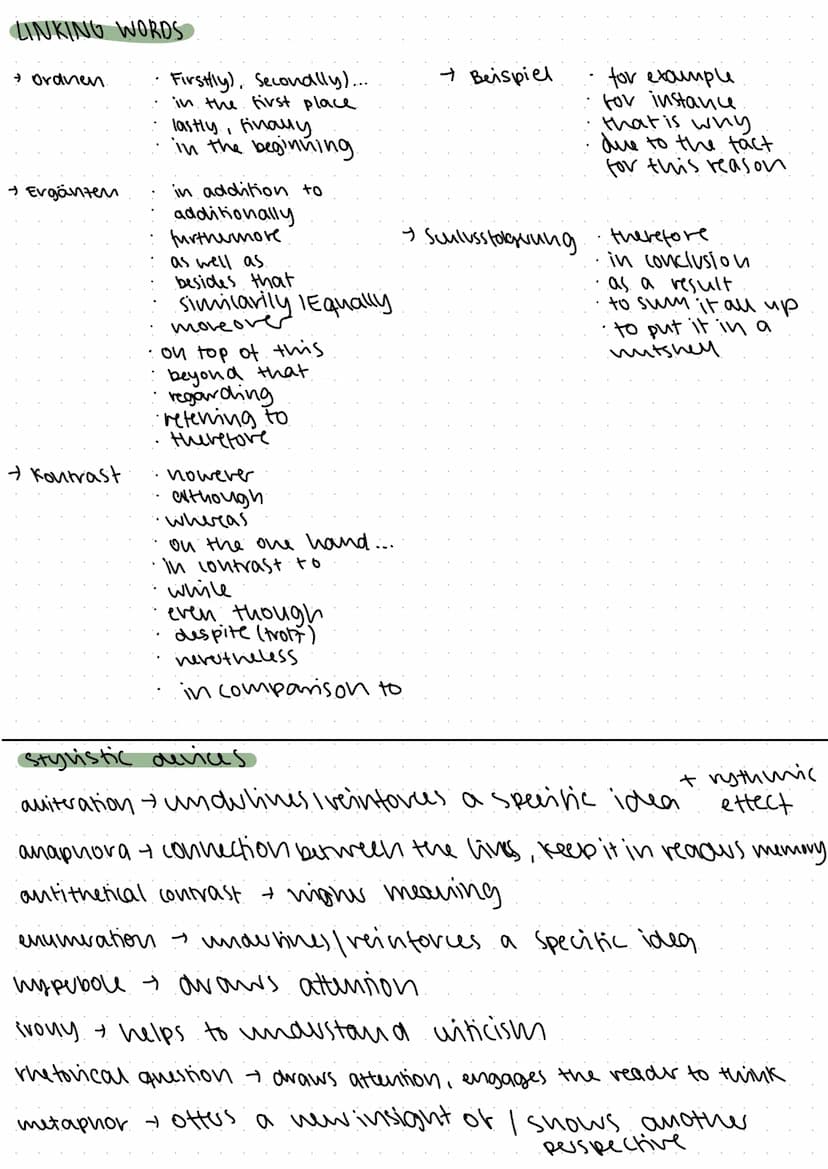 LINKING WORDS
→ Ordnen
· First(ly), Second(ly)...
· in the first place
· lastly, finally
· in the beginning
→ Ergänzen
· in addition to
· additionally
· furthermore
· as well as
· besides that
· similarily / Equally
· moreover
· on top of this
· beyond that
· regarding
· refering to
· therefore
→ Kontrast
· however
· although
· whereas
· on the one hand...
· in contrast to
· while
· even though
· despite (trotz)
· nevertheless
· in comparison to
→ Beispiel
· for example
· for instance
· that is why
· due to the fact
for this reason
→ Schlussfolgerung
· therefore
· in conclusion
· as a result
· to sum it all up
· to put it in a
nutshell
stylistic devices
alliteration → underlines / reinforces a specific idea + rythmic
effect
anaphora → connection between the lines, keep it in readers memory
antithetical contrast → higher meaning
enumeration → underlines / reinforces a specific idea
hyperbole → draws attention
irony → helps to understand criticism
rhetorical question → draws attention, engages the reader to think
metaphor → offers a new insight of / shows another
perspective